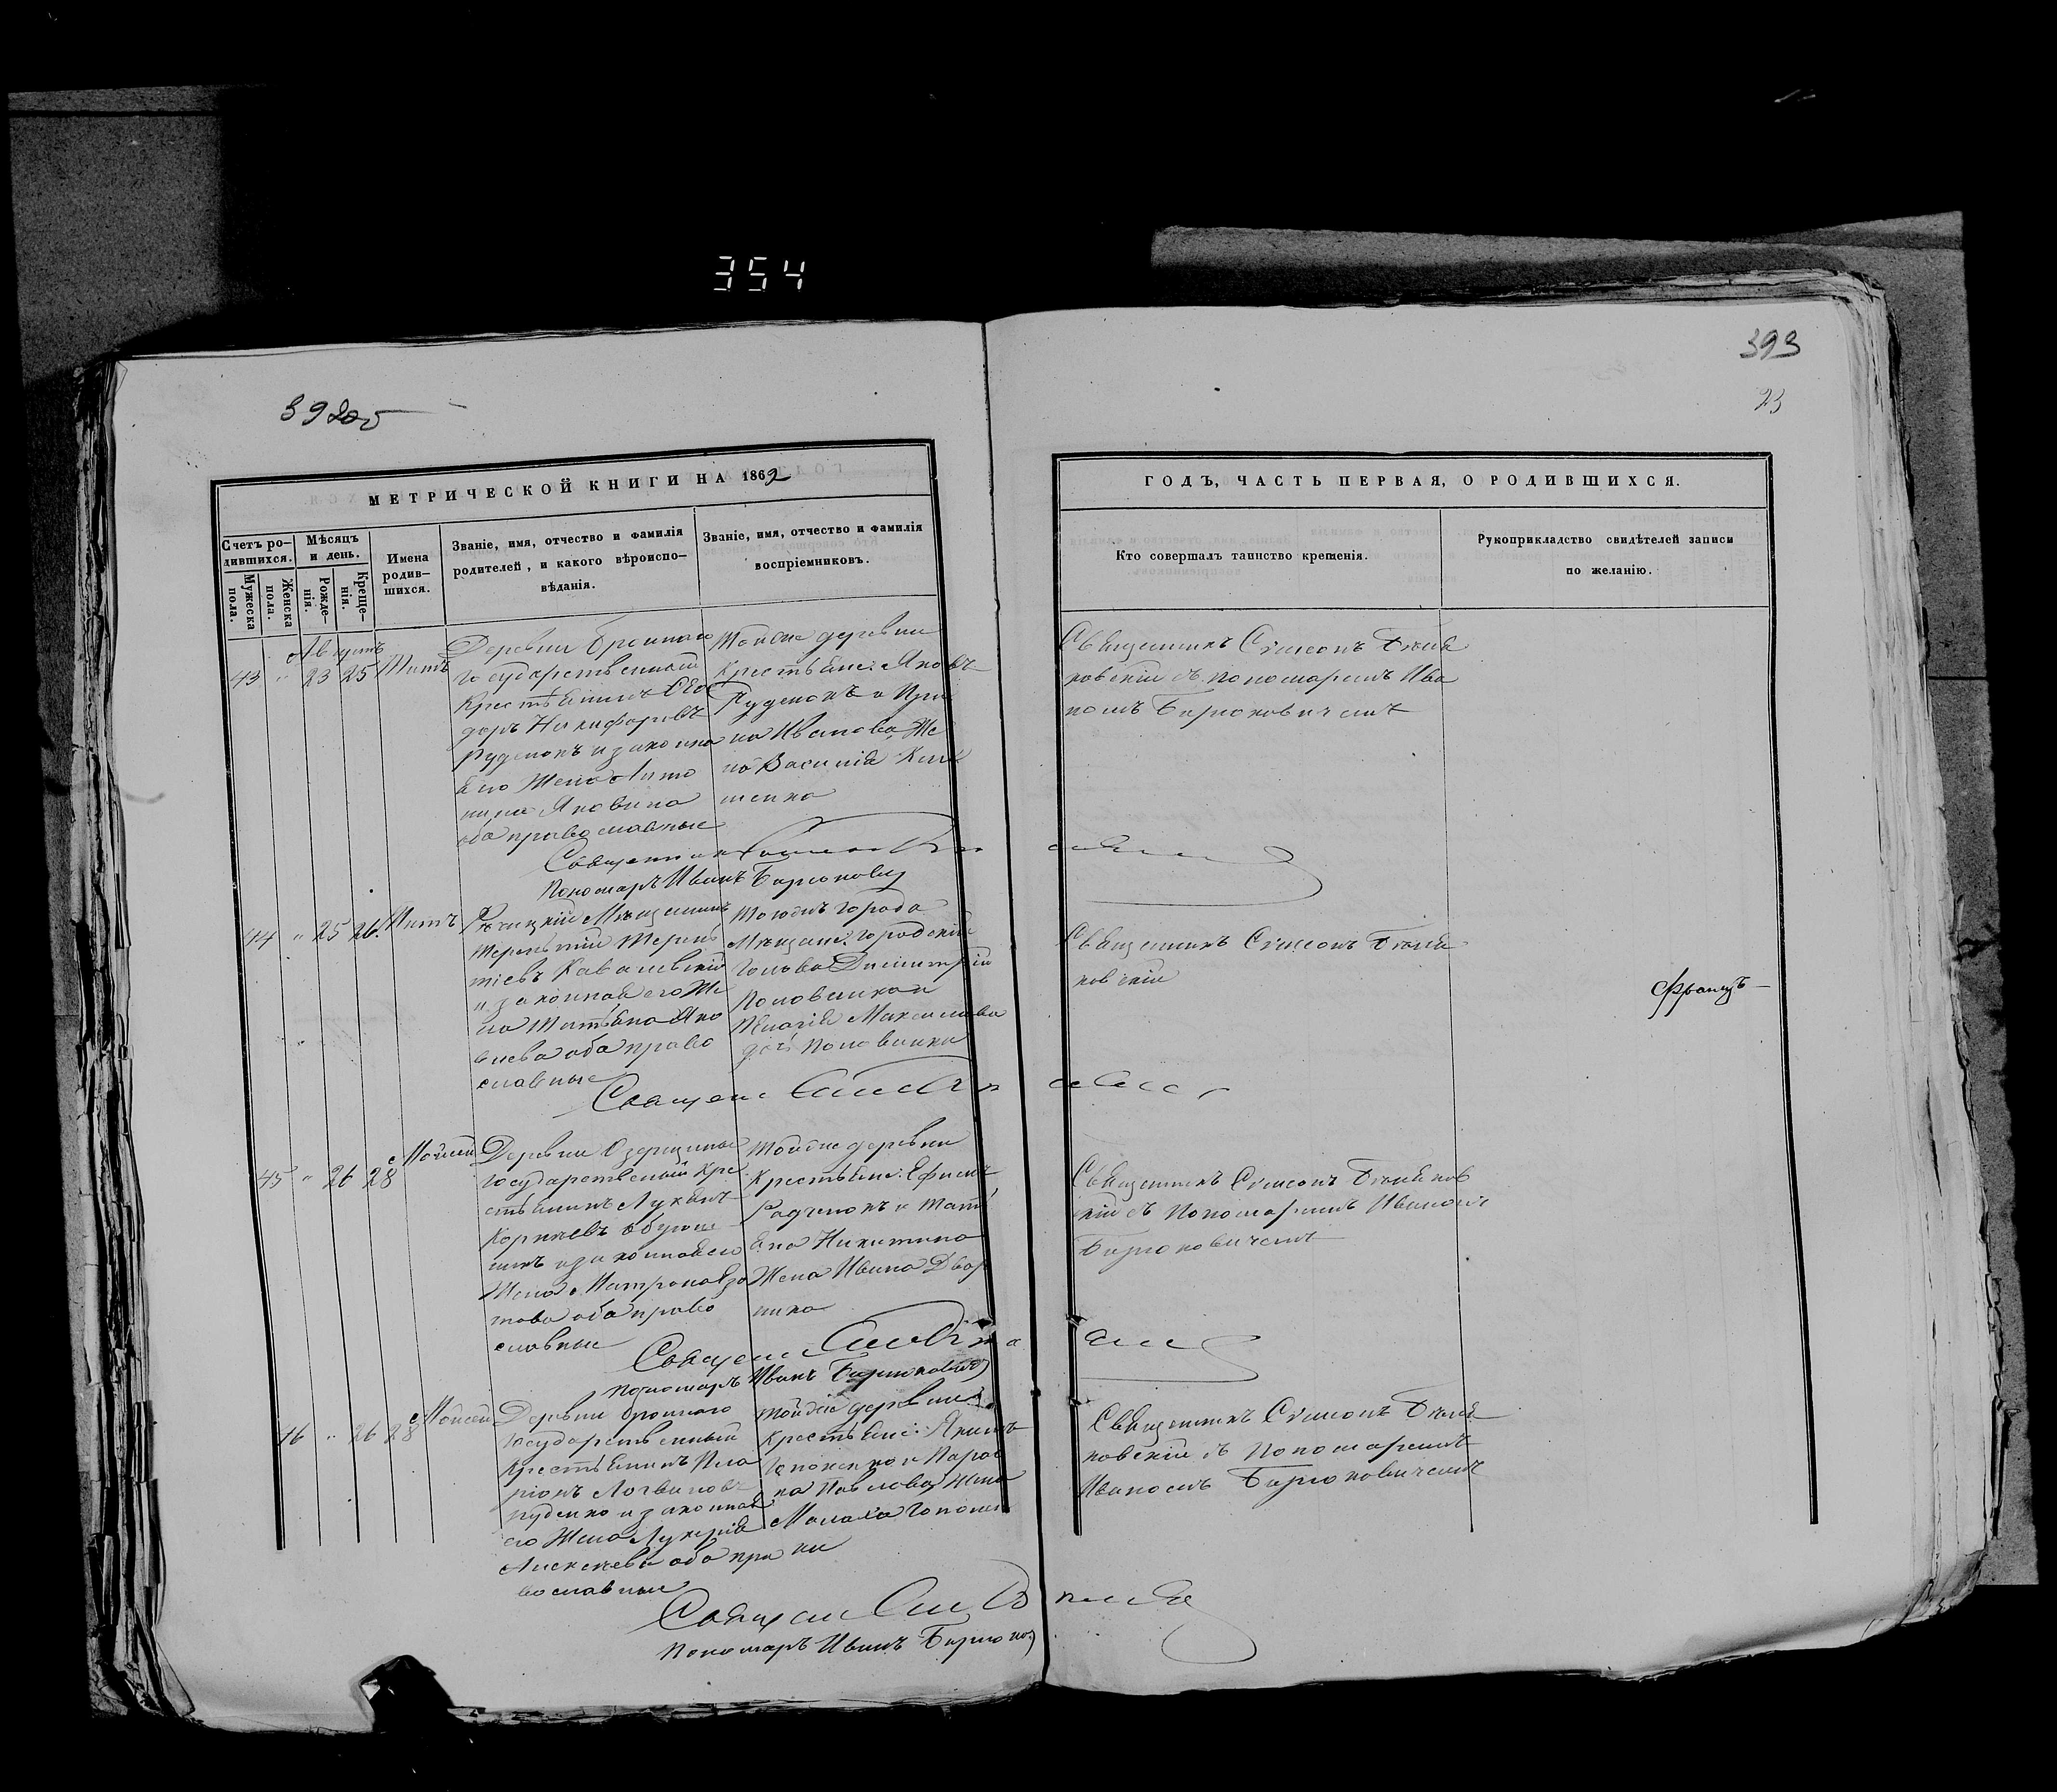 354
393
23
МЕТРИЧЕСКОЙ КНИГИ НА 1862
ГОДЪ, ЧАСТЬ ПЕРВАЯ, О РОДИВШИХСЯ.
Счетъ ро-
дившихся.
Мужеска
пола.
Женска
пола.
Мѣсяцъ
и день.
Рожде-
нія.
Креще-
нія.
Имена
родив-
шихся.
Званіе, имя, отчество и фамилія
родителей, и какого вѣроиспо-
вѣданія.
Званіе, имя, отчество и фамилія
воспріемниковъ.
Кто совершалъ таинство крещенія.
Рукоприкладство свидѣтелей записи
по желанію.
Августъ
43 " 23 25 Титъ
Деревни Броннаго
Государственный
Крестьянинъ Ѳео
доръ Никифоровъ
Руденокъ и законная
его Жена Анто
нина Яковлева
оба православные
Тойже деревни
Крестьяне: Яковъ
Руденокъ и Ири
на Иванова, Же
на Василія
Священникъ Симеонъ
ковскій съ пономаремъ Ива
номъ Бирюковичемъ
Священникъ
Пономаръ Иванъ Бирюкович
44 " 25 26. Титъ
Рѣчицкій Мѣщанинъ
Терентій Терень
тіевъ Кавалевскій
и законная его Же
на Татьяна Яко
влева оба право
славные
Тогожъ города
Мѣщане: городскій
Голова Димитрій
Половинкой
Пелагія Максимова
дочь Половинки
Священникъ Симеонъ
ковскій
Францъ
Священ
45 " 26 28 Моисей
Деревни Озерщины
Государственный Кре
стьянинъ Лукьянъ
Корнѣевъ
и законная его
Жена Матрона
това оба право
славные
Тойже деревни
Крестьяне: Ефимъ
Радченокъ и Тать
яна Никитина
Жена Ивана Двор
ника
Священникъ Симеонъ
скій съ Пономаремъ Иваномъ
Бирюковичемъ
Священ
Пономаръ Иванъ Бирюкович
46 " 26 28 Моисей
Деревни Броннаго
Государственный
Крестьянинъ Ила
ріонъ Логвиновъ
Руденко и законная
его Жена Лукерія
Алексѣева оба пра
вославные
Тойже деревни
Крестьяне: Якимъ
Гапоненко и Парас
ка Павлова, Жена
Малаха Гапонен
ки
Священникъ Симеонъ
ковскій съ Пономаремъ
Иваномъ Бирюковичемъ
Священ
Пономаръ Иванъ Бирюков